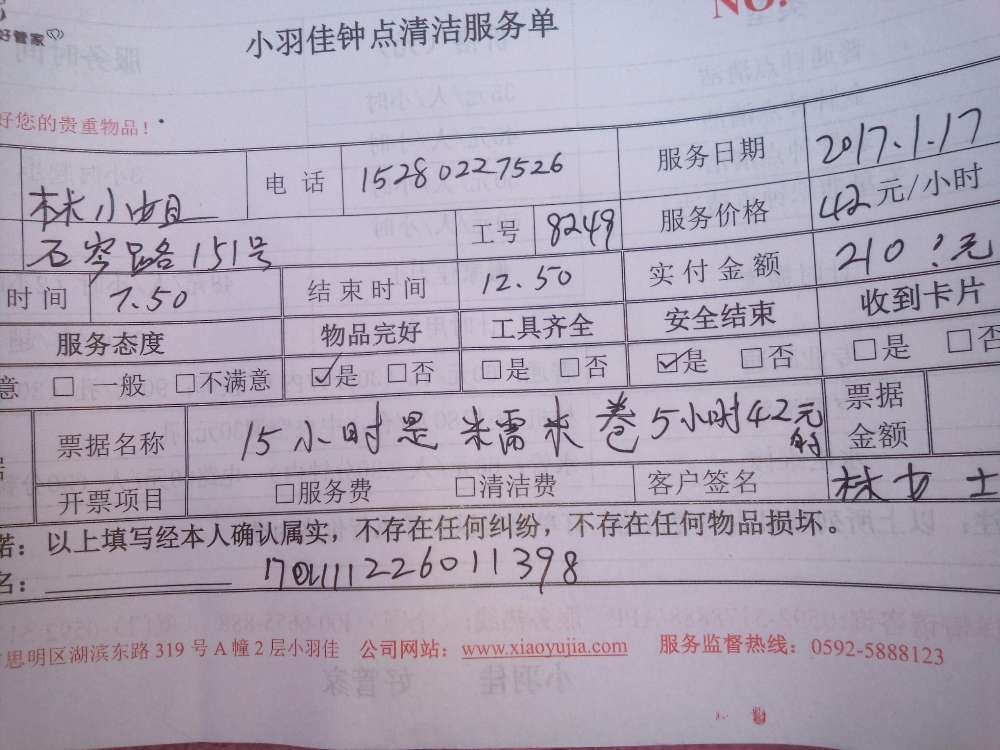 好管家
小羽佳钟点清洁服务单
NO.
好您的贵重物品！
林小姐 电话 15280227526 服务日期 2017.1.17
石岑路151号 工号 8249 服务价格 42元/小时
时间 7.50 结束时间 12.50 实付金额 210?元
服务态度 物品完好 工具齐全 安全结束 收到卡片
意 □ 一般 □不满意 ☑是 □否 □是 □否 ☑是 □否 □是 □否
票据名称 15小时是 米需米卷5小时42元的 票据金额
开票项目 □服务费 □清洁费 客户签名 林女士
诺：以上填写经本人确认属实，不存在任何纠纷，不存在任何物品损坏。
名：
思明区湖滨东路 319 号 A 幢 2 层小羽佳 公司网站：www.xiaoyujia.com 服务监督热线：0592-5888123